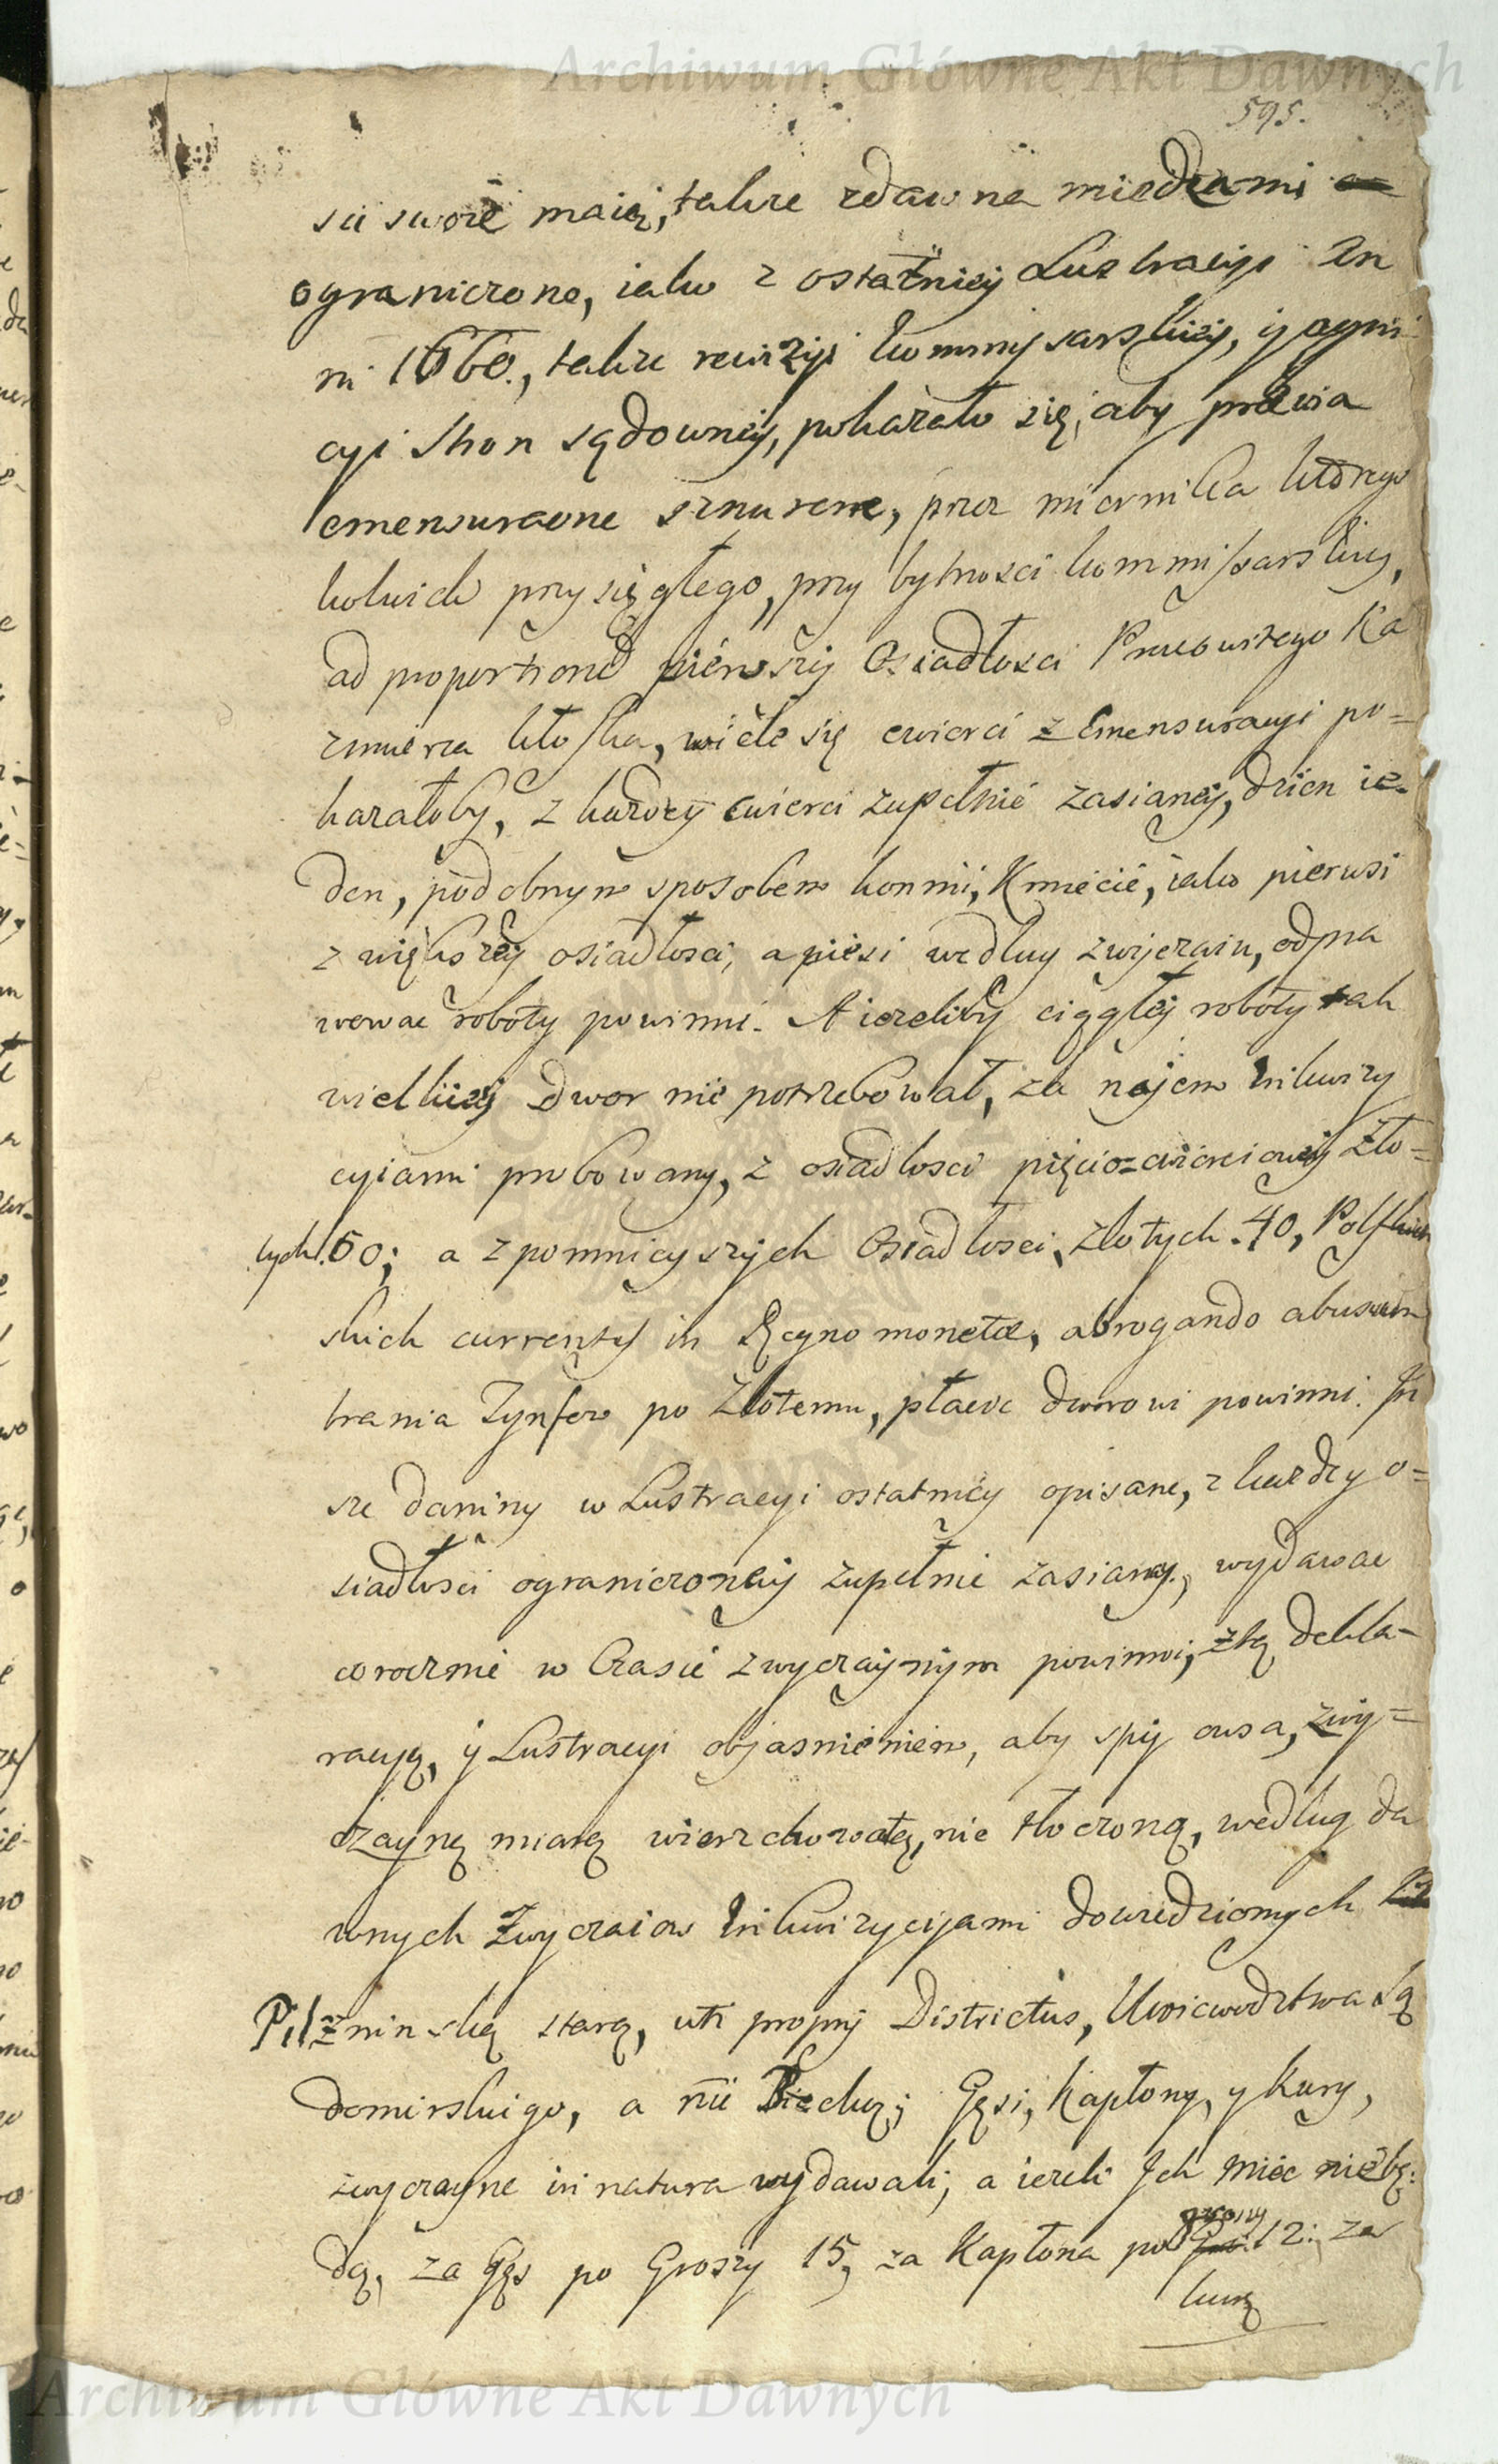 Archiwum Główne Akt Dawnych
595.
su swoie maią, takze zdawna miedzami
ograniczone, iako z ostatniey Lustracyi An
ni 1660., takze rewizyi kommissarskiey, y
cyi Stron sądowney, pokazało się, aby
emensuracone sznurem, przez miernika ktorego
kolwiek przysięgłego, przy bytnosci kommissarskiey,
ad proportione pierwszey Osiadłosci Ka
zmierza Kłoska, wiele się cwierci z Emensuracyi po=
kazałoby, z kazdey cwierci zupełnie zasianey, dzien ie-
den, podobnym sposobem konmi, Kmiecie, iako pierwsi
z większey osiadłosci, a piesi według zwyczaiu, odpra
wowac roboty powinni. A iezeliby ciągłey roboty tak
wielkiey Dwor nie potrzebował, za najem Inkwizy
cyiami probowany, z osiadłosci pięcio=cwierciowey Zło=
tych 60; a z pomnieyszych Osiadłosci, złotych 40, Polskich
skich currentis in Regno monetæ, abrogando abusum
brania Tynfow po Złotemu, płacic dworowi powinni. In
sze daniny w Lustracyi ostatniey opisane, z kazdey o=
siadłosci ograniczoney zupełnie zasianey, wydawac
corocznie w Czasie zwyczaynym powinni, z tą dekla-
racyą, y Lustracyi objasnieniem, aby spy owsa, zwy=
czayną miarą wierzchowatą, nie tłoczoną, według da
wnych Zwyczaiow Inkwizycyiami dowiedzionych
Pilznińską starą, uti proprij Districtus, Woiewodztwa Są
domirskiego, a nie Biecką; Gęsi, Kapłony, y Kury,
zwyczayne in natura wydawali, a iezeli Ich miec nie bę:
dą, za Gęs po Groszy 15, za Kapłona po groszy 12: za
kurę
Archiwum Główne Akt Dawnych